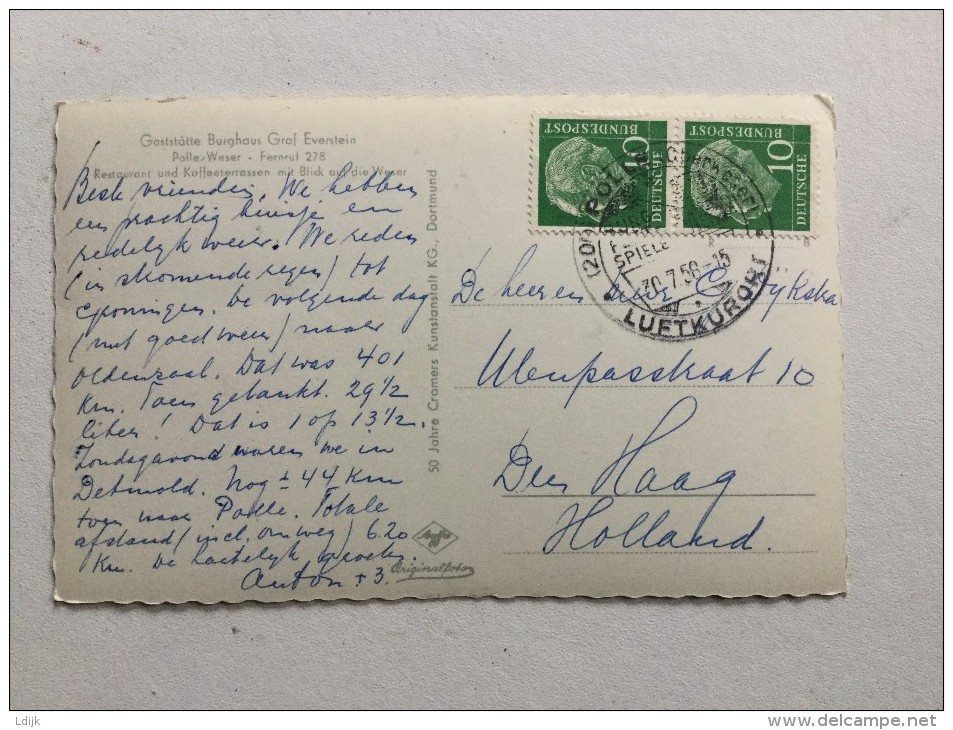 Gaststätte Burghaus Graf Everstein
Polle/Weser - Fernruf 278
Restaurant und Kaffeeterrassen mit Blick auf die Weser
Beste vrienden, We hebben
een prachtig huisje en
redelijk weer. We reden
(in stromende regen) tot
Groningen. De volgende dag
(met goed weer) naar
Oldenzaal. Dat was 401
Km. Toen getankt. 29 1/2
liter! Dat is 1 op 13 1/2.
Zondagavond waren we in
Detmold. Nog ± 44 Km
toen naar Polle. Totale
afstand (incl. omweg) 620
Km. De hartelijk groeten.
Anton + 3.
50 Jahre Cramers Kunstanstalt KG., Dortmund
Agfa
Originalfoto
10
DEUTSCHE
BUNDESPOST
10
DEUTSCHE
BUNDESPOST
B
(20a) POLLE
SPIELE
30.7.56-15
LUFTKURORT
De heeren
Ulenpasstraat 10
Den Haag
Holland.
Ldijk
www.delcampe.net